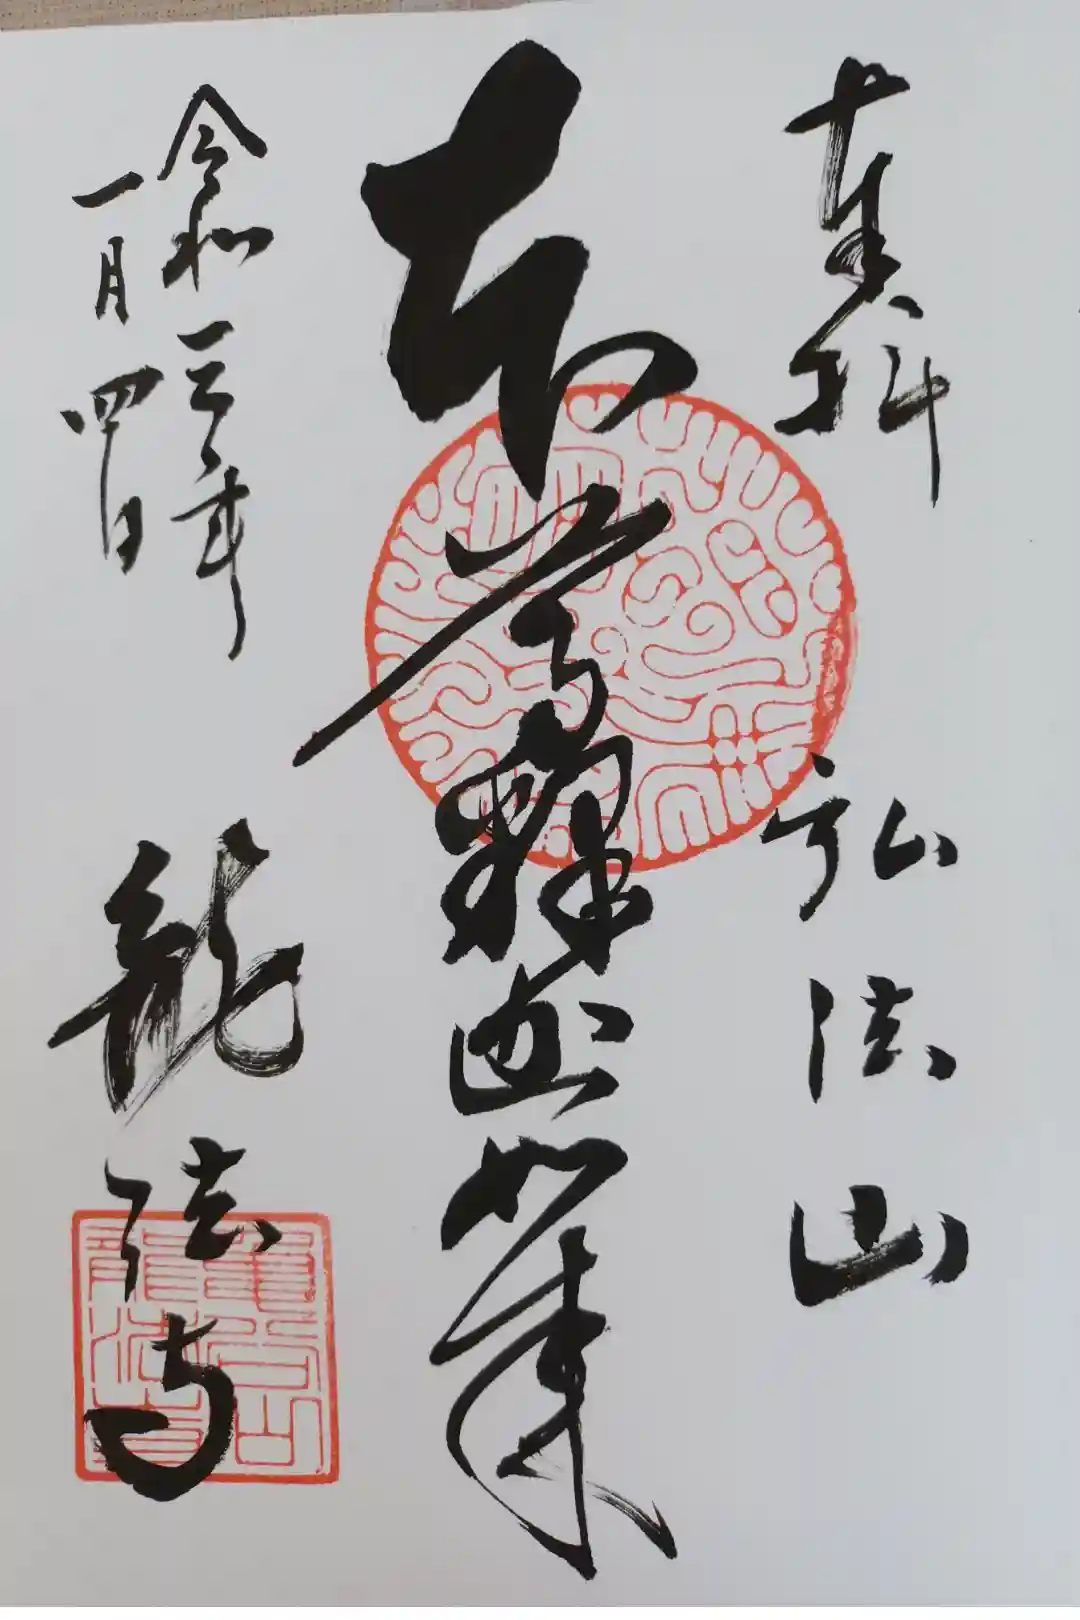 奉拝 弘法山
本尊釋迦如来
令和三年
一月四日
龍法寺